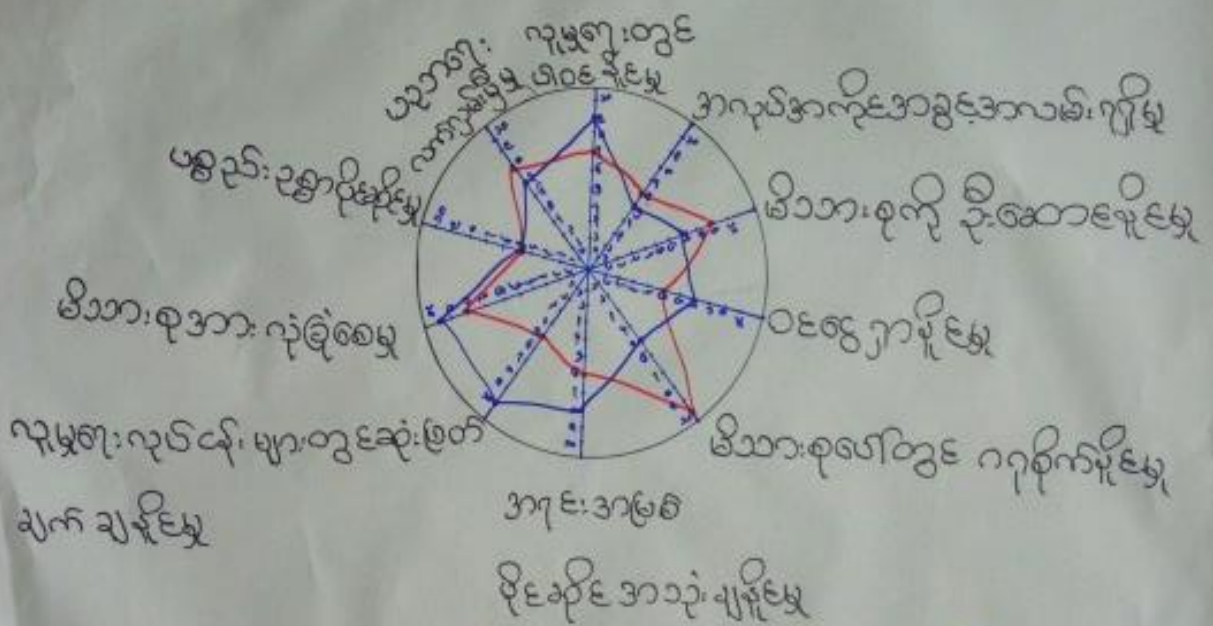 လူမှုရေးတွင်
ပါဝင်နိုင်မှု
အလုပ်အကိုင်အခွင့်အလမ်းရရှိမှု
မိသားစုကို ဦးဆောင်နိုင်မှု
ဝင်ငွေရှာနိုင်မှု
မိသားစုပေါ်တွင် ဂရုစိုက်နိုင်မှု
အရင်းအမြစ်
ပိုင်ဆိုင်အသုံးချနိုင်မှု
လူမှုရေးလုပ်ငန်းများတွင်ဆုံးဖြတ်
ချက်ချနိုင်မှု
မိသားစုအားလုံခြုံစေမှု
ပစ္စည်းဥစ္စာပိုင်ဆိုင်မှု
ပညာရေး